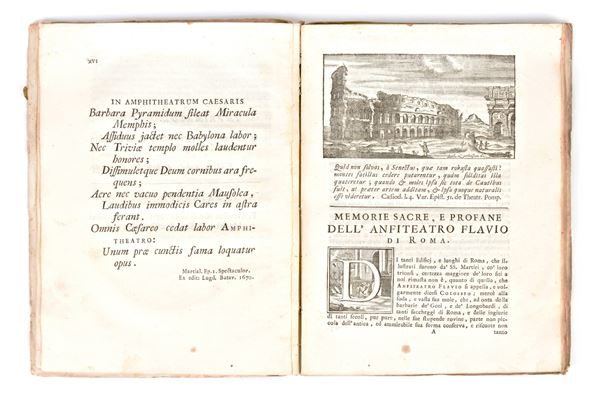 XVI
IN AMPHITHEATRUM CAESARIS
Barbara Pyramidum sileat Miracula
Memphis;
Assiduus jactet nec Babylona labor;
Nec Triviæ templo molles laudentur
honores;
Dissimuletque Deum cornibus ara fre-
quens;
Aere nec vacuo pendentia Mausolea,
Laudibus immodicis Cares in astra
ferant.
Omnis Cæsareo cedat labor AMPHI-
THEATRO:
Unum præ cunctis fama loquatur
opus.
Martial. Ep. 1. Spectaculor.
Ex edit: Lugd. Batav. 1670.
Quid non solvas, ò Senectus, quæ tam robusta quassasti?
montes facilius cedere putarentur, quàm soliditas illa
quateretur; quando & moles ipsa sic tota de Cautibus
fuit, ut præter artem additam, & ipsa quoque naturalis
esse videretur. Cassiod. l.4. Ver. Epist. 51. de Theatr. Pomp.
MEMORIE SACRE, E PROFANE
DELL' ANFITEATRO FLAVIO
DI ROMA.
DI tanti Edificj, e luoghi di Roma, che il-
lustrati furono da' SS. Martiri, co' loro
tricofi, certezza maggiore de' loro sci a
noi rimasta non è, quanto di questo, che
ANFITEATRO FLAVIO si appella, e vol-
garmente dicesi COLOSSEO; mercè alla
soda, e vasta sua mole, che, ad onta della
barbarie de' Goti, e Longobardi, di
tanti saccheggi di Roma, e delle ingiurie
di tanti secoli, pur pure, nelle sue stupende rovine, parte non pic-
cola dell'antica, ed ammirabile sua forma conserva, e riscuote non
A
tanto